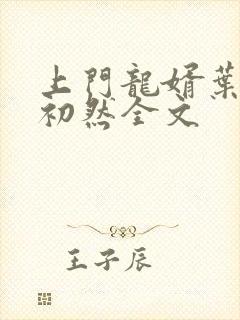 上門龍婿葉
初然全文
王子辰